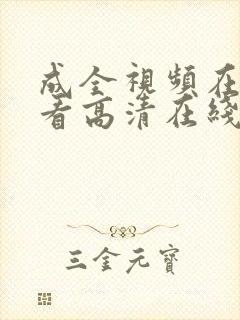 成全視頻在
看高清在綫
三金元寶